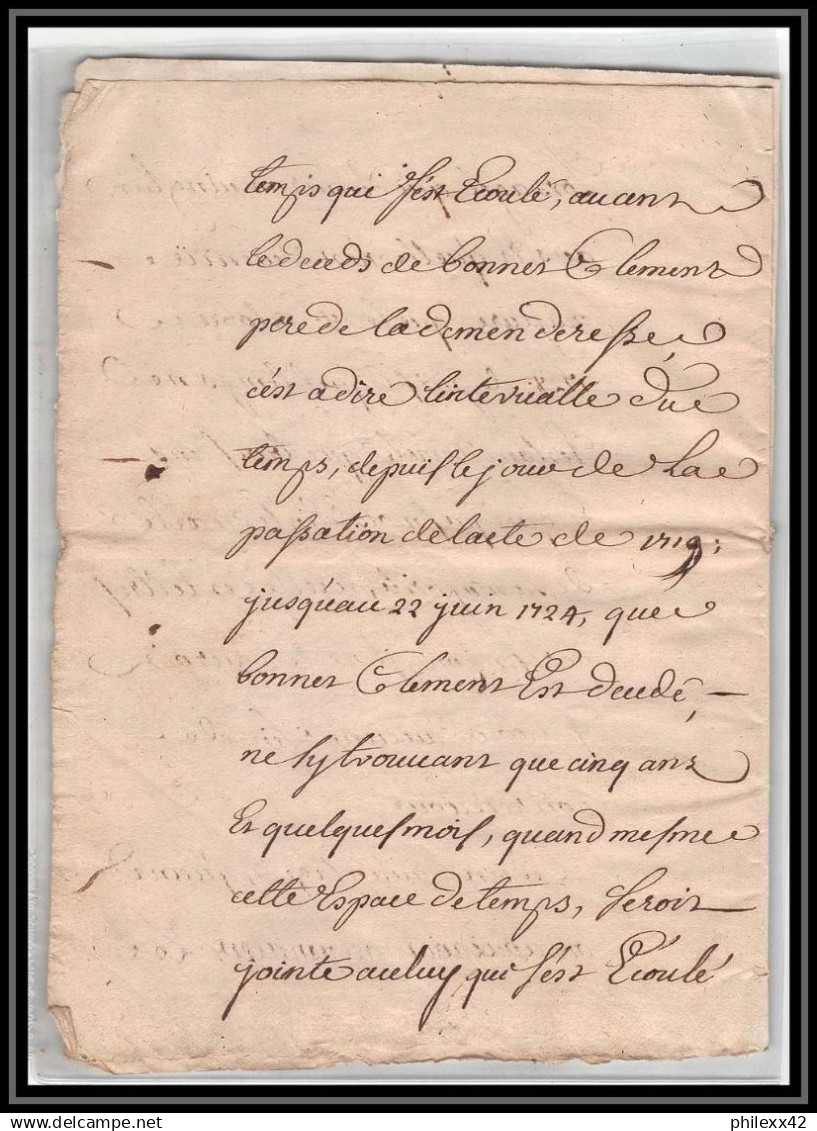 temps qui sést Ecoulé, auant
le deceds de bonnet Clement
pere de la demenderesse,
cést a dire lintervialle du
temps, depuis le jour de La
passation de lacte de 1719;
jusquau 22 juin 1724, que
bonnet Clement Est decedé,
ne sy trouuant que cinq ans
Et quelques mois, quand mesme
cette Espace de temps, seroit
jointe a celuy qui sést Ecoulé
philexx42